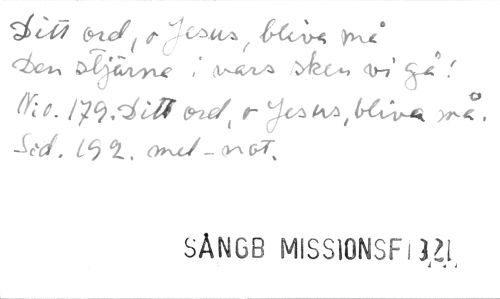 Ditt ord, o Jesus, bliva må
Den stjärna i vars sken vi gå!
N:o. 179. Ditt ord, o Jesus, bliva må.
Sid. 192. mel-not.
SÅNGB MISSIONSF 1321